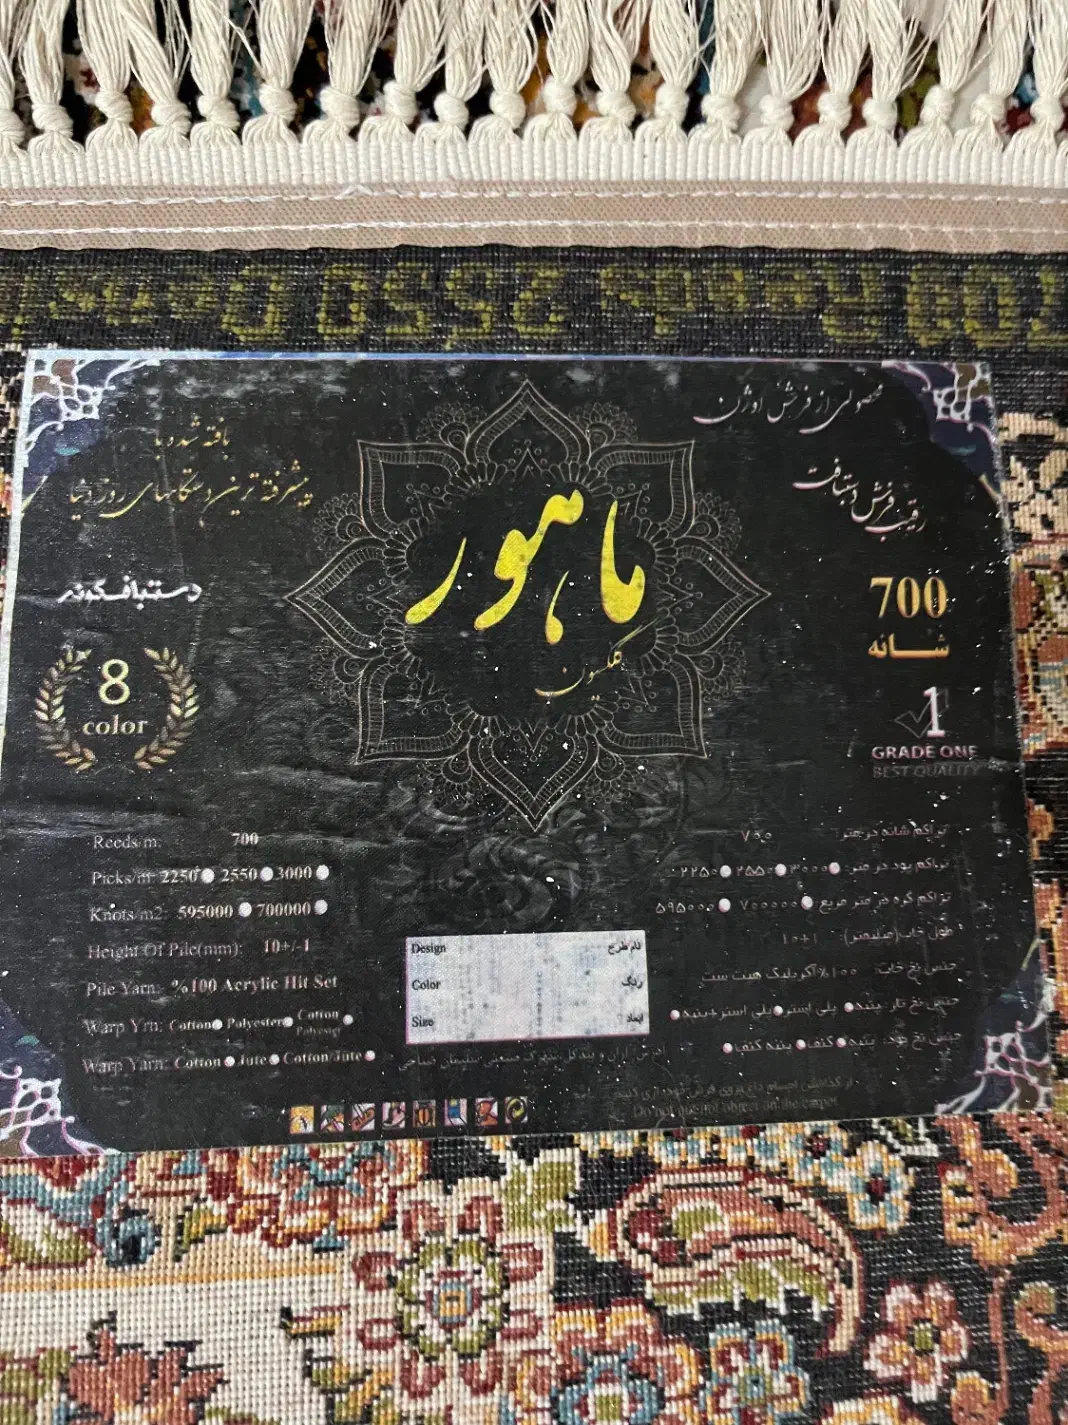 2550
محصولی از فرش اوژن
بافته شده با
پیشرفته ترین دستگاههای روز دنیا
رقیب فرش دستبافت
ماهور
کلکسیون
دستبافگونه
8
color
700
شانه
1
GRADE ONE
BEST QUALITY
Reeds/m: 700
Picks/m: 2250 2550 3000
Knots/m2: 595000 700000
Height Of Pile(mm): 10+/-1
Pile Yarn: %100 Acrylic Hit Set
Warp Yrn: Cotton Polyester Cotton Polyester
Warp Yarn: Cotton Jute Cotton/Jute
تراکم شانه در متر: ۷۰۰
تراکم پود در متر: ۳۰۰۰ ۲۵۵۰ ۲۲۵۰
تراکم گره در متر مربع ۷۰۰۰۰۰ ۵۹۵۰۰۰
طول خاب(میلیمتر): ۱۰+۱
جنس نخ خاب: ۱۰۰% آکریلیک هیت ست
جنس نخ تار: پنبه پلی استر پلی استر+پنبه
جنس نخ پود: پنبه کنف پنبه کنف
Design نام طرح
Color رنگ
Size ابعاد
از گذاشتن اجسام داغ بروی فرش خودداری کنید
Do not put hot object on the carpet